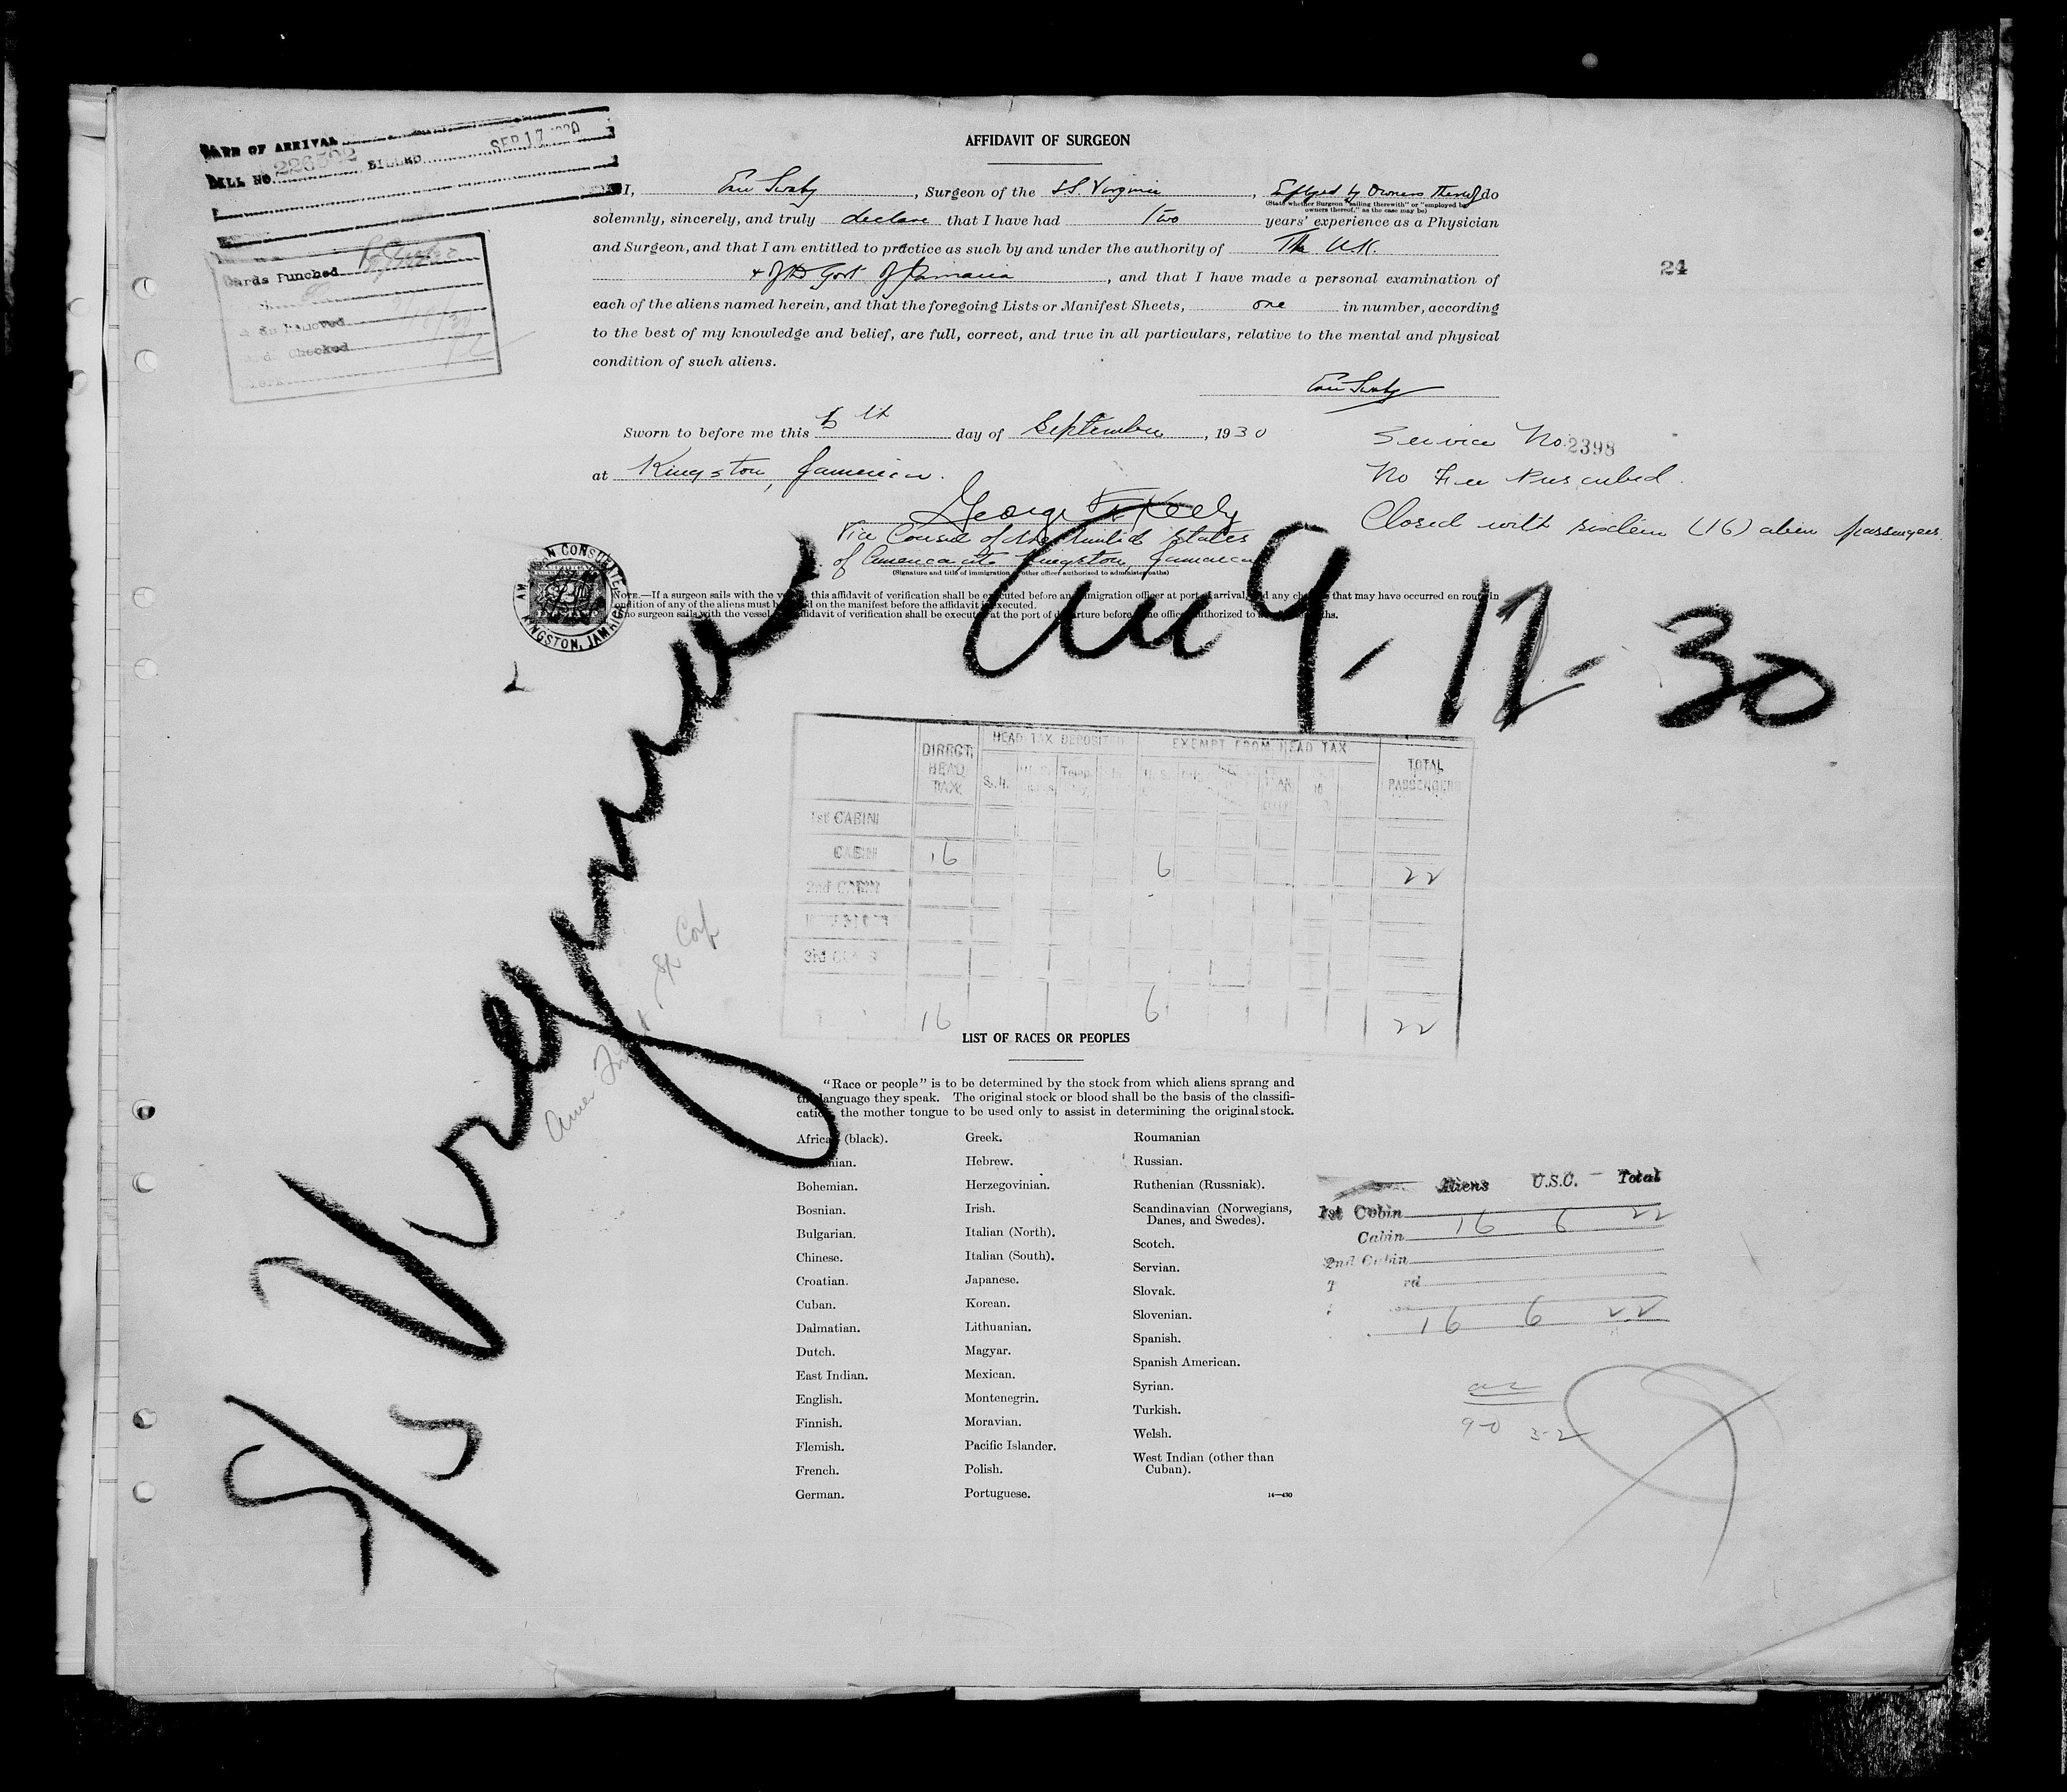 DATE OF ARRIVAL
BILL NO. 226502 BILLED SEP 17 1930
Cards Punched
Checked
AFFIDAVIT OF SURGEON
I, Swaby, Surgeon of the S.S. Virginia, Employed by Owners thereof do
(State whether Surgeon "sailing therewith" or "employed by
owners thereof," as the case may be)
solemnly, sincerely, and truly declare that I have had Two years' experience as a Physician
and Surgeon, and that I am entitled to practice as such by and under the authority of The U.K.
24
+ of the Govt. of Jamaica, and that I have made a personal examination of
each of the aliens named herein, and that the foregoing Lists or Manifest Sheets, one in number, according
to the best of my knowledge and belief, are full, correct, and true in all particulars, relative to the mental and physical
condition of such aliens.
Swaby
Sworn to before me this th day of September, 1930
at Kingston, Jamaica.
Service No. 2398
No Fee Prescribed.
Closed with sixteen (16) alien passengers.
George Kelly
Vice Consul of the United States
of America at Kingston, Jamaica
(Signature and title of immigration or other officer authorized to administer oaths)
AMERICAN CONSULATE
KINGSTON, JAMAICA
NOTE.—If a surgeon sails with the vessel, this affidavit of verification shall be executed before an immigration officer at port of arrival, and any change that may have occurred en route in
condition of any of the aliens must be noted on the manifest before the affidavit is executed.
If no surgeon sails with the vessel, affidavit of verification shall be executed at the port of departure before the officer authorized to administer oaths.
Aug. 12 - 30
S/S Virginia
DIRECT HEAD TAX HEAD TAX DEPOSITED EXEMPT FROM HEAD TAX TOTAL PASSENGERS
1st CABIN
CABIN 16 6 22
2nd CABIN
3rd CLASS
16 6 22
LIST OF RACES OR PEOPLES
"Race or people" is to be determined by the stock from which aliens sprang and
the language they speak. The original stock or blood shall be the basis of the classifi-
cation, the mother tongue to be used only to assist in determining the original stock.
African (black).
Armenian.
Bohemian.
Bosnian.
Bulgarian.
Chinese.
Croatian.
Cuban.
Dalmatian.
Dutch.
East Indian.
English.
Finnish.
Flemish.
French.
German.
Greek.
Hebrew.
Herzegovinian.
Irish.
Italian (North).
Italian (South).
Japanese.
Korean.
Lithuanian.
Magyar.
Mexican.
Montenegrin.
Moravian.
Pacific Islander.
Polish.
Portuguese.
Roumanian
Russian.
Ruthenian (Russniak).
Scandinavian (Norwegians,
Danes, and Swedes).
Scotch.
Servian.
Slovak.
Slovenian.
Spanish.
Spanish American.
Syrian.
Turkish.
Welsh.
West Indian (other than
Cuban).
14—430
Aliens U.S.C. Total
1st Cabin 16 6 22
Cabin
2nd Cabin
16 6 22
9-0 3-2